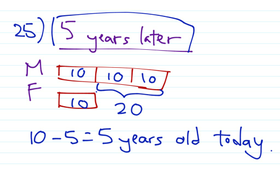 25) 5 years later
M 10 10 10
F 10 20
10 - 5 = 5 years old today.